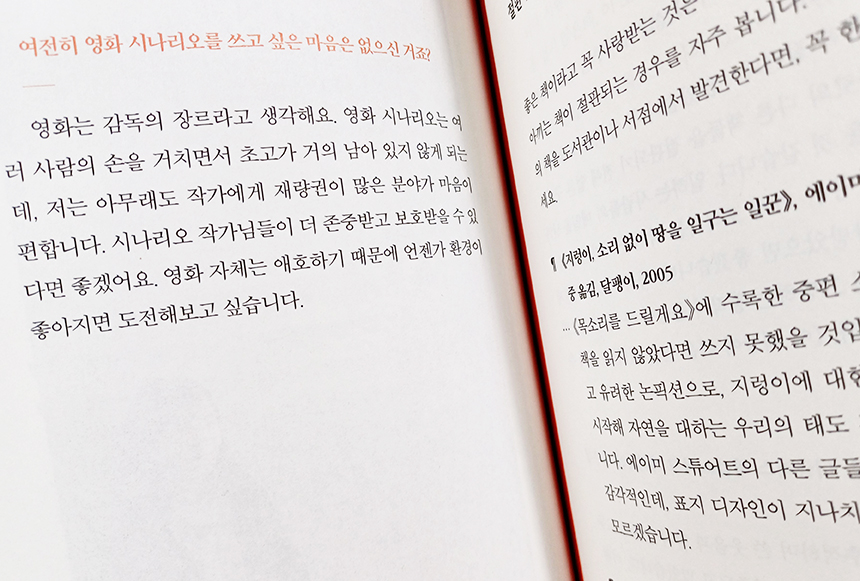 여전히 영화 시나리오를 쓰고 싶은 마음은 없으신 거죠?
영화는 감독의 장르라고 생각해요. 영화 시나리오는 여
러 사람의 손을 거치면서 초고가 거의 남아 있지 않게 되는
데, 저는 아무래도 작가에게 재량권이 많은 분야가 마음이
편합니다. 시나리오 작가님들이 더 존중받고 보호받을 수 있
다면 좋겠어요. 영화 자체는 애호하기 때문에 언젠가 환경이
좋아지면 도전해보고 싶습니다.
좋은 책이라고 꼭 사랑받는 것은
아끼는 책이 절판되는 경우를 자주 봅니다.
의 책을 도서관이나 서점에서 발견한다면, 꼭 한
세요.
¶ 《지렁이, 소리 없이 땅을 일구는 일꾼》, 에이미
중 옮김, 달팽이, 2005
… 《목소리를 드릴게요》에 수록한 중편
책을 읽지 않았다면 쓰지 못했을 것입
고 유려한 논픽션으로, 지렁이에 대한
시작해 자연을 대하는 우리의 태도
니다. 에이미 스튜어트의 다른 글들
감각적인데, 표지 디자인이 지나치
모르겠습니다.